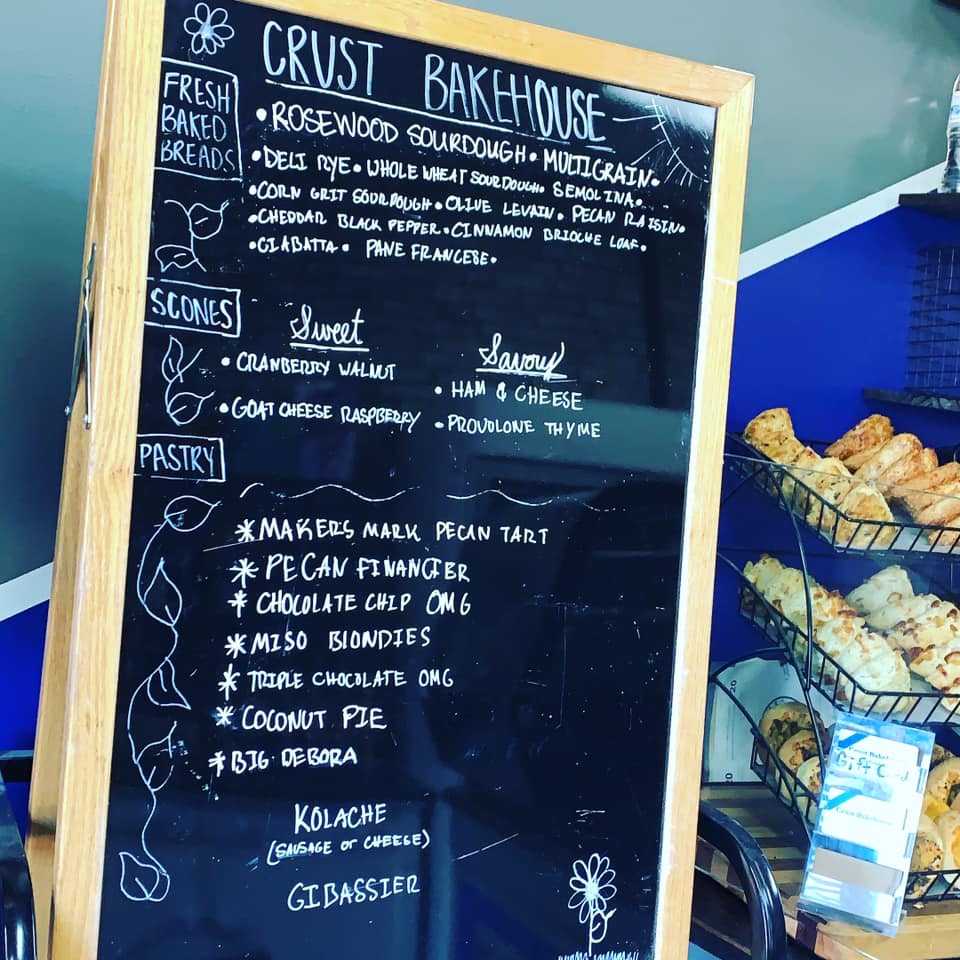 CRUST BAKEHOUSE
FRESH
BAKED
BREADS
•ROSEWOOD SOURDOUGH• MULTIGRAIN•
•DELI RYE• WHOLE WHEAT SOURDOUGH• SEMOLINA•
•CORN GRIT SOURDOUGH• OLIVE LEVAIN• PECAN RAISIN•
•CHEDDAR BLACK PEPPER•CINNAMON BRIOCHE LOAF•
•CIABATTA• PANE FRANCESE•
SCONES
Sweet
• CRANBERRY WALNUT
• GOAT CHEESE RASPBERRY
Savory
• HAM & CHEESE
• PROVOLONE THYME
PASTRY
*MAKERS MARK PECAN TART
*PECAN FINANCIER
*CHOCOLATE CHIP OMG
*MISO BLONDIES
*TRIPLE CHOCOLATE OMG
*COCONUT PIE
*BIG DEBORA
KOLACHE
(SAUSAGE or CHEESE)
GIBASSIER
Gift Card
Crust Bakehouse